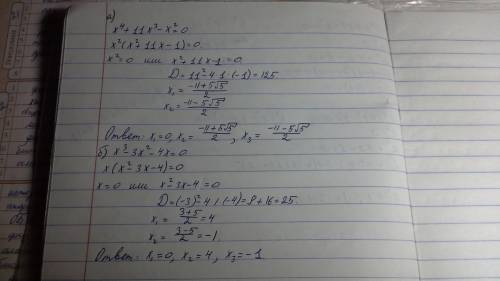 а)
x⁴+11x³-x²=0
x²(x²+11x-1)=0
x²=0 или x²+11x-1=0
D=11²-4·1·(-1)=125
x₁=(-11+5√5)/2
x₂=(-11-5√5)/2
Ответ: x₁=0, x₂=(-11+5√5)/2, x₃=(-11-5√5)/2
б) x³-3x²-4x=0
x(x²-3x-4)=0
x=0 или x²-3x-4=0
D=(-3)²-4·1·(-4)=9+16=25
x₁=(3+5)/2=4
x₂=(3-5)/2=-1
Ответ: x₁=0, x₂=4, x₃=-1